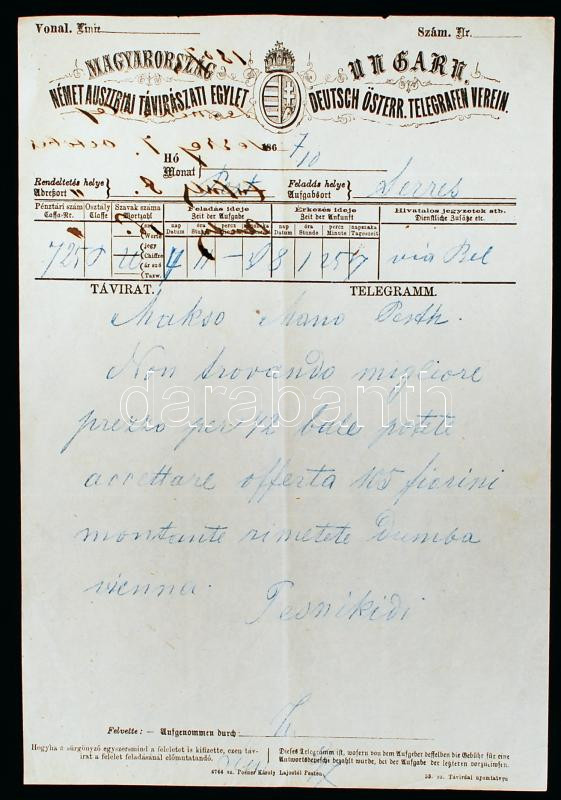 Vonal. Linie
Szám. Nr.
MAGYARORSZÁG
UNGARN.
NÉMET AUSZTRIAI TÁVIRÁSZATI EGYLET
DEUTSCH ÖSTERR. TELEGRAFEN VEREIN.
186
7/10
Hó
Monat
Rendeltetés helye
Adreßort
Pest
Feladás helye
Aufgabsort
Serres
Pénztári szám Osztály Szavak száma Feladás ideje Érkezés ideje Hivatalos jegyzetek stb.
Cassa-Nr. Classe Wortzahl Zeit der Aufgabe Zeit der Ankunft Dienstliche Zusätze etc.
nap óra percz napszaka nap óra percz napszaka
Datum Stunde Minute Tageszeit Datum Stunde Minute Tageszeit
szó Worte
jegy Chiffen
ár szó Taxw.
725 8 1 25 via Bel
TÁVIRAT. TELEGRAMM.
Makso Mano Pesth.
Non trovando migliore
prezzo per 42 bale potete
accettare offerta 105 fiorini
montante rimetete Dumba
vienna.
Pesnikidi
darabanth
Felvette: — Aufgenommen durch
Hogyha a sürgönyző egyszersmind a feleletet is kifizette, ezen távirat a felelet feladásánál előmutatandó.
Dieses Telegramm ist, wofern von dem Aufgeber desselben die Gebühr für eine Antwortsdepesche bezahlt wurde, bei der Aufgabe der letzteren vorzuweisen.
4766 sz. Posner Károly Lajostól Pesten.
53. sz. Táviradai nyomtatvány